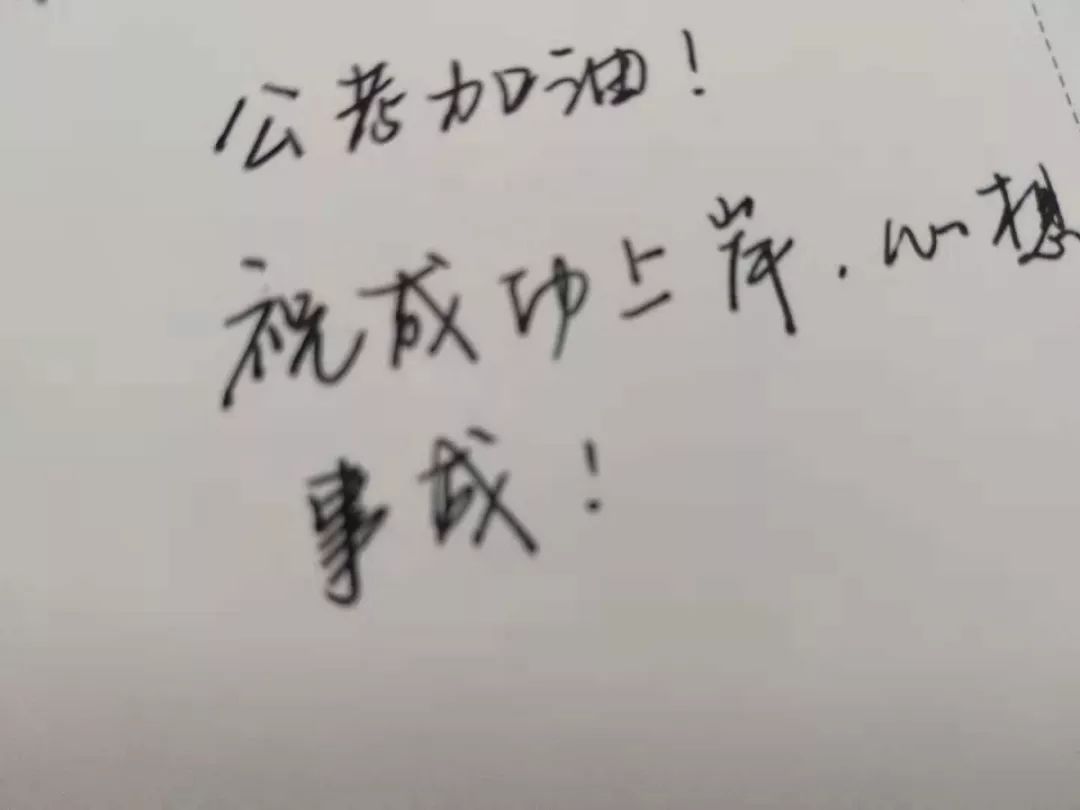 公考加油!
祝成功上岸.心想
事成!